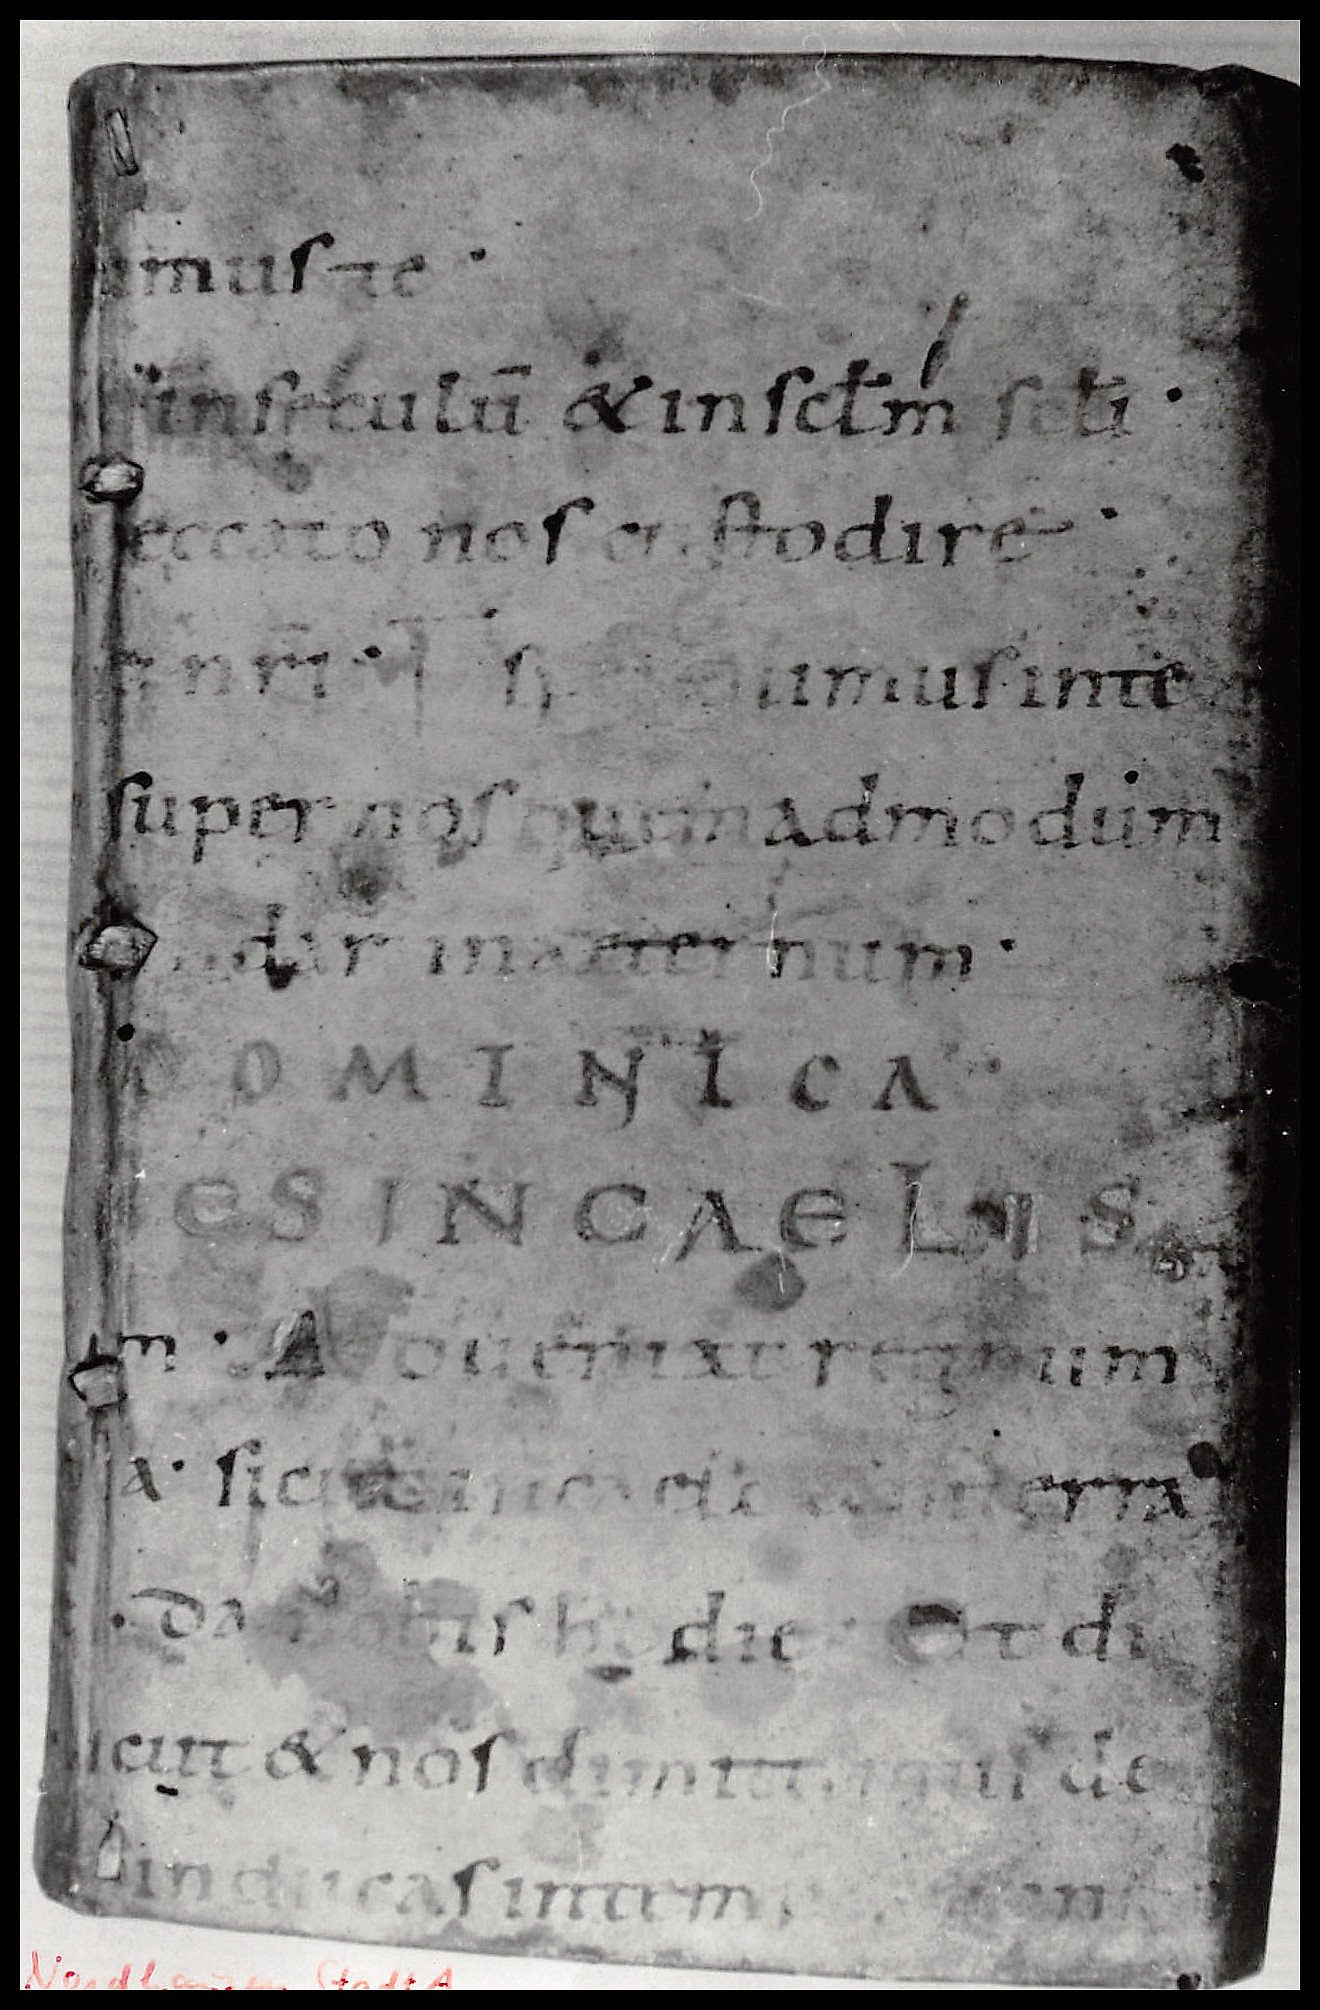 imus te ·
in seculū & in sclm scli ·
eccato nos custodire ·
nrī · sumus in te
super nos quem admodum
in aeternum ·
DOMINICA ·
ES IN CAELIS
m · Adueniat regnum
a · sicut in caelo & in terra
· Da nobis hodie Et di
icut & nos dimittimus de
inducas in tem
Nordhausen StadtA